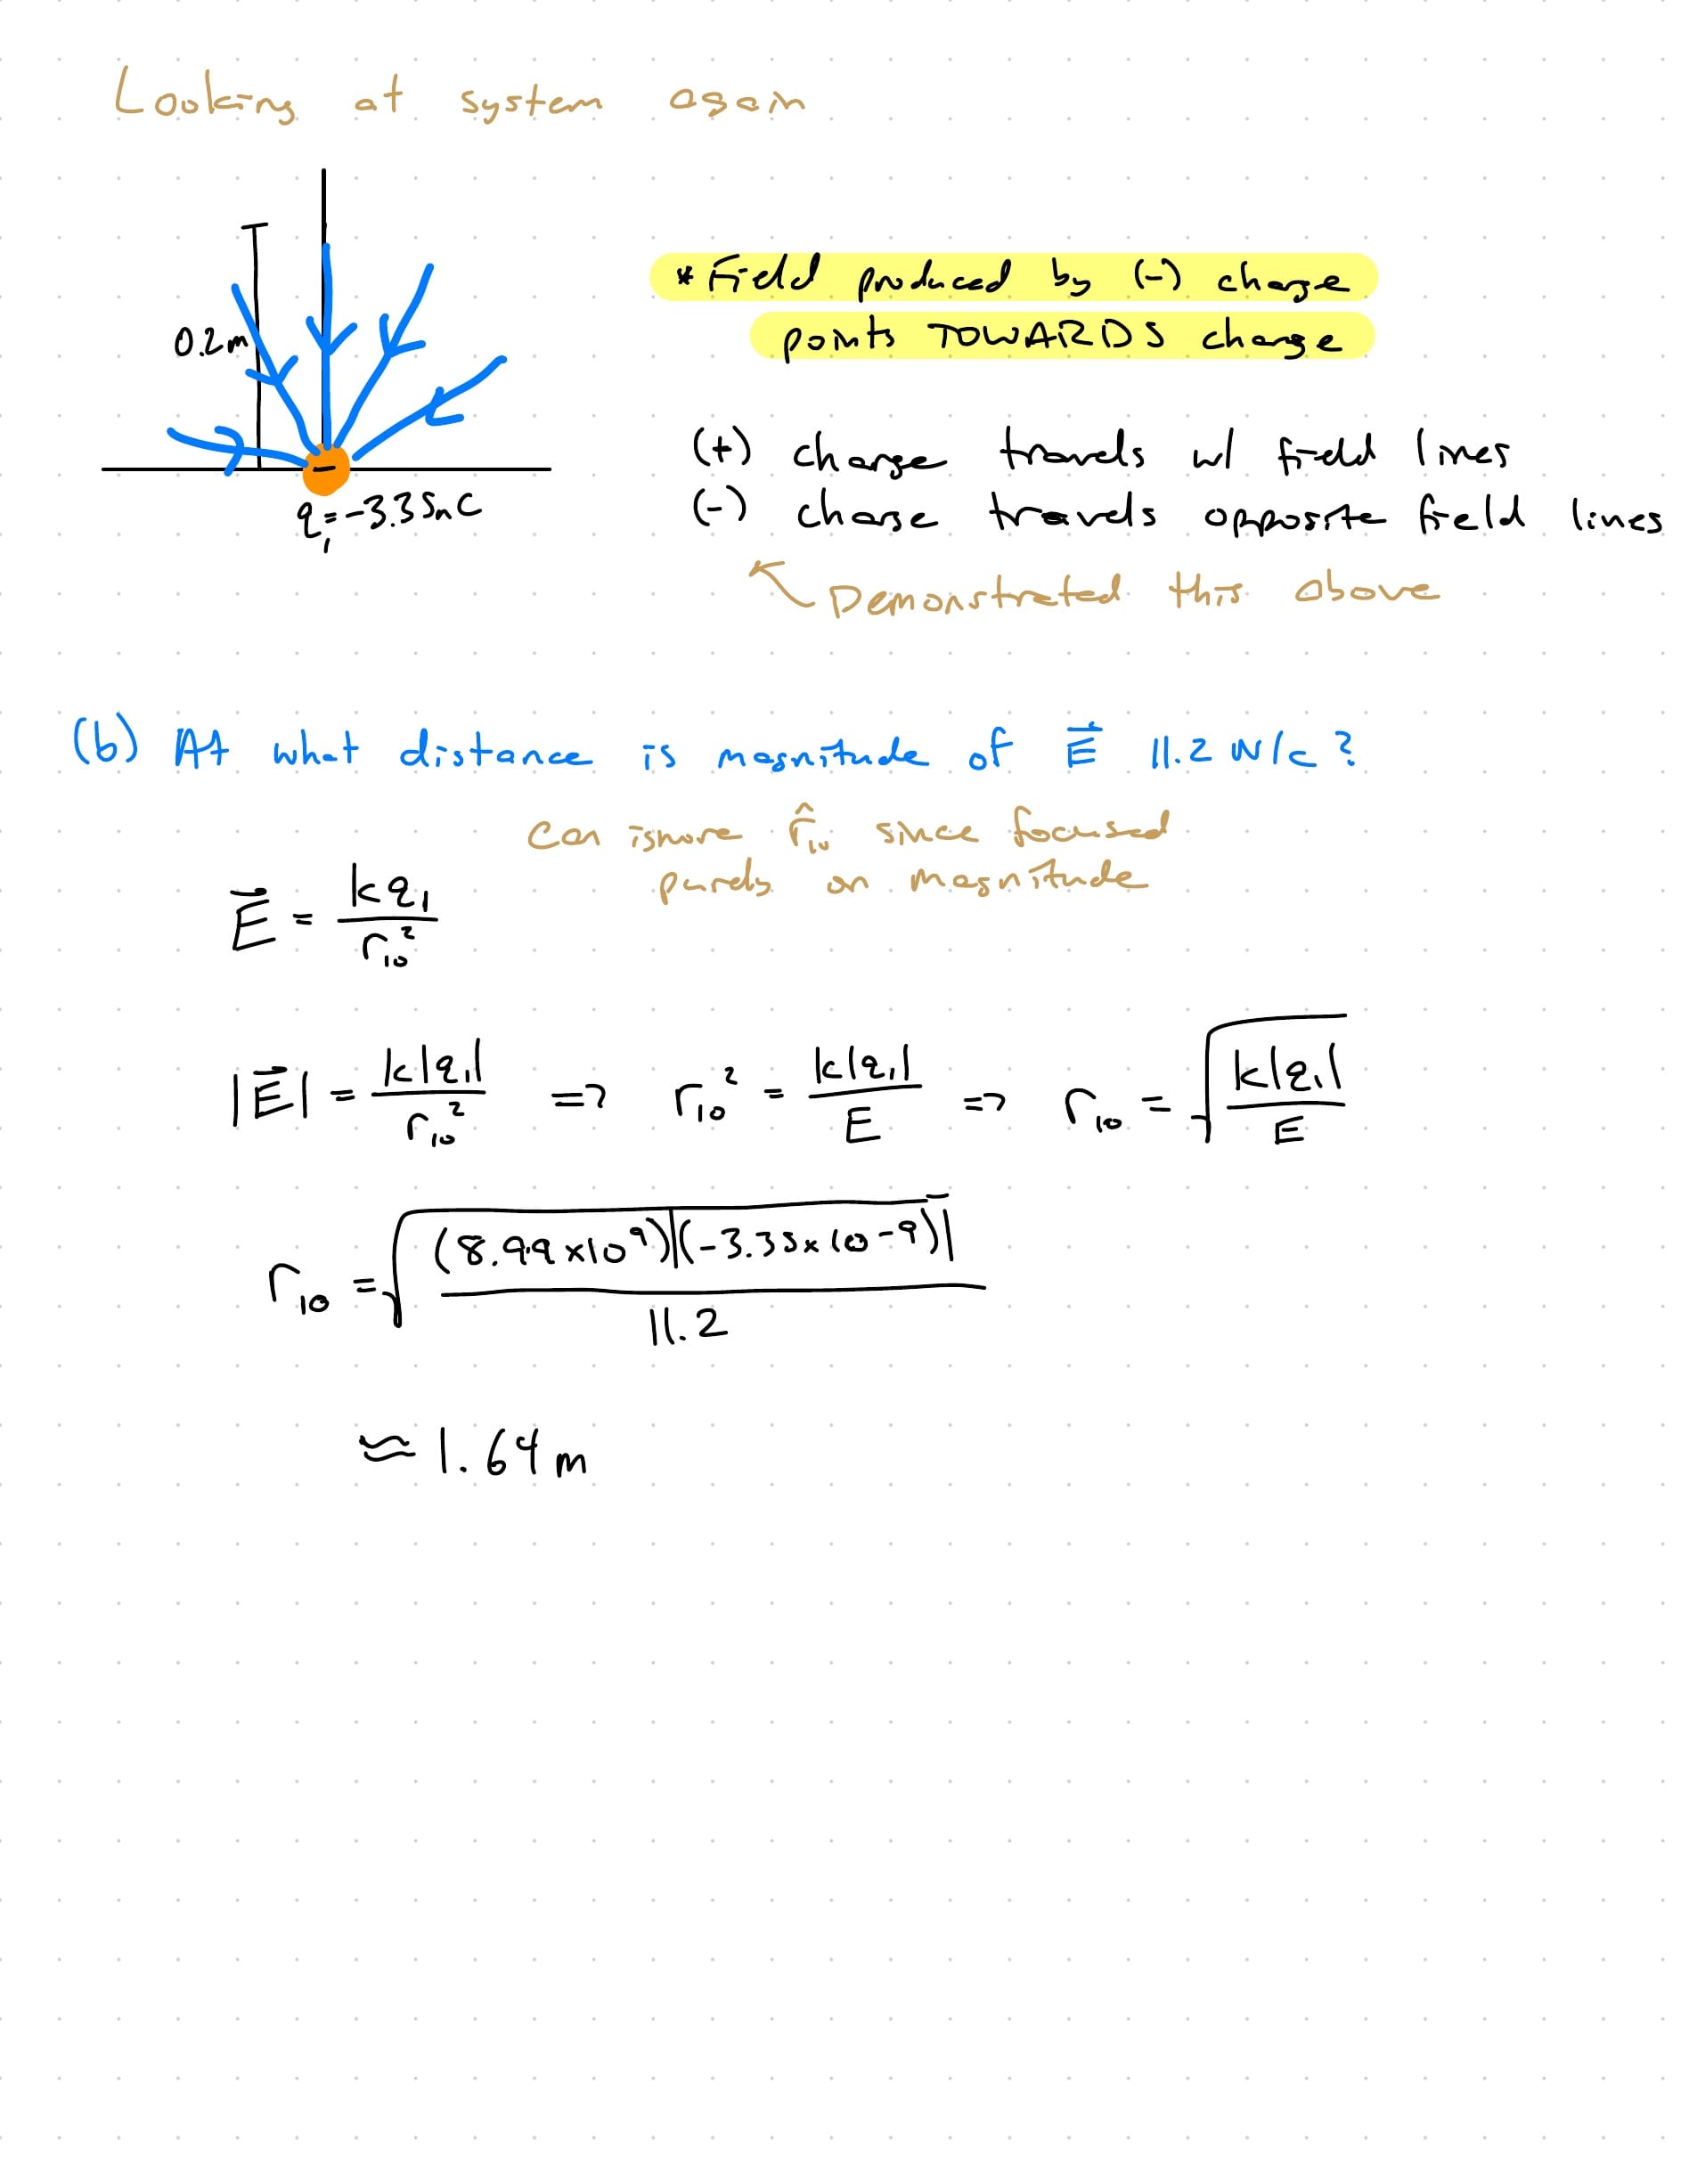 Looking at system again
0.2m
q₁=-3.35nC
* Field produced by (-) charge
points TOWARDS charge
(+) charge travels w/ field lines
(-) charge travels opposite field lines
Demonstrated this above
(b) At what distance is magnitude of E⃗ 11.2 N/C?
Can ignore r̂₁₀ since focused
purely on magnitude
E⃗ = kq₁/r₁₀²
|E⃗| = k|q₁|/r₁₀² => r₁₀² = k|q₁|/E => r₁₀ = √(k|q₁|/E)
r₁₀ = √((8.99x10⁹)|(-3.35x10-9)|/11.2)
≈ 1.64m